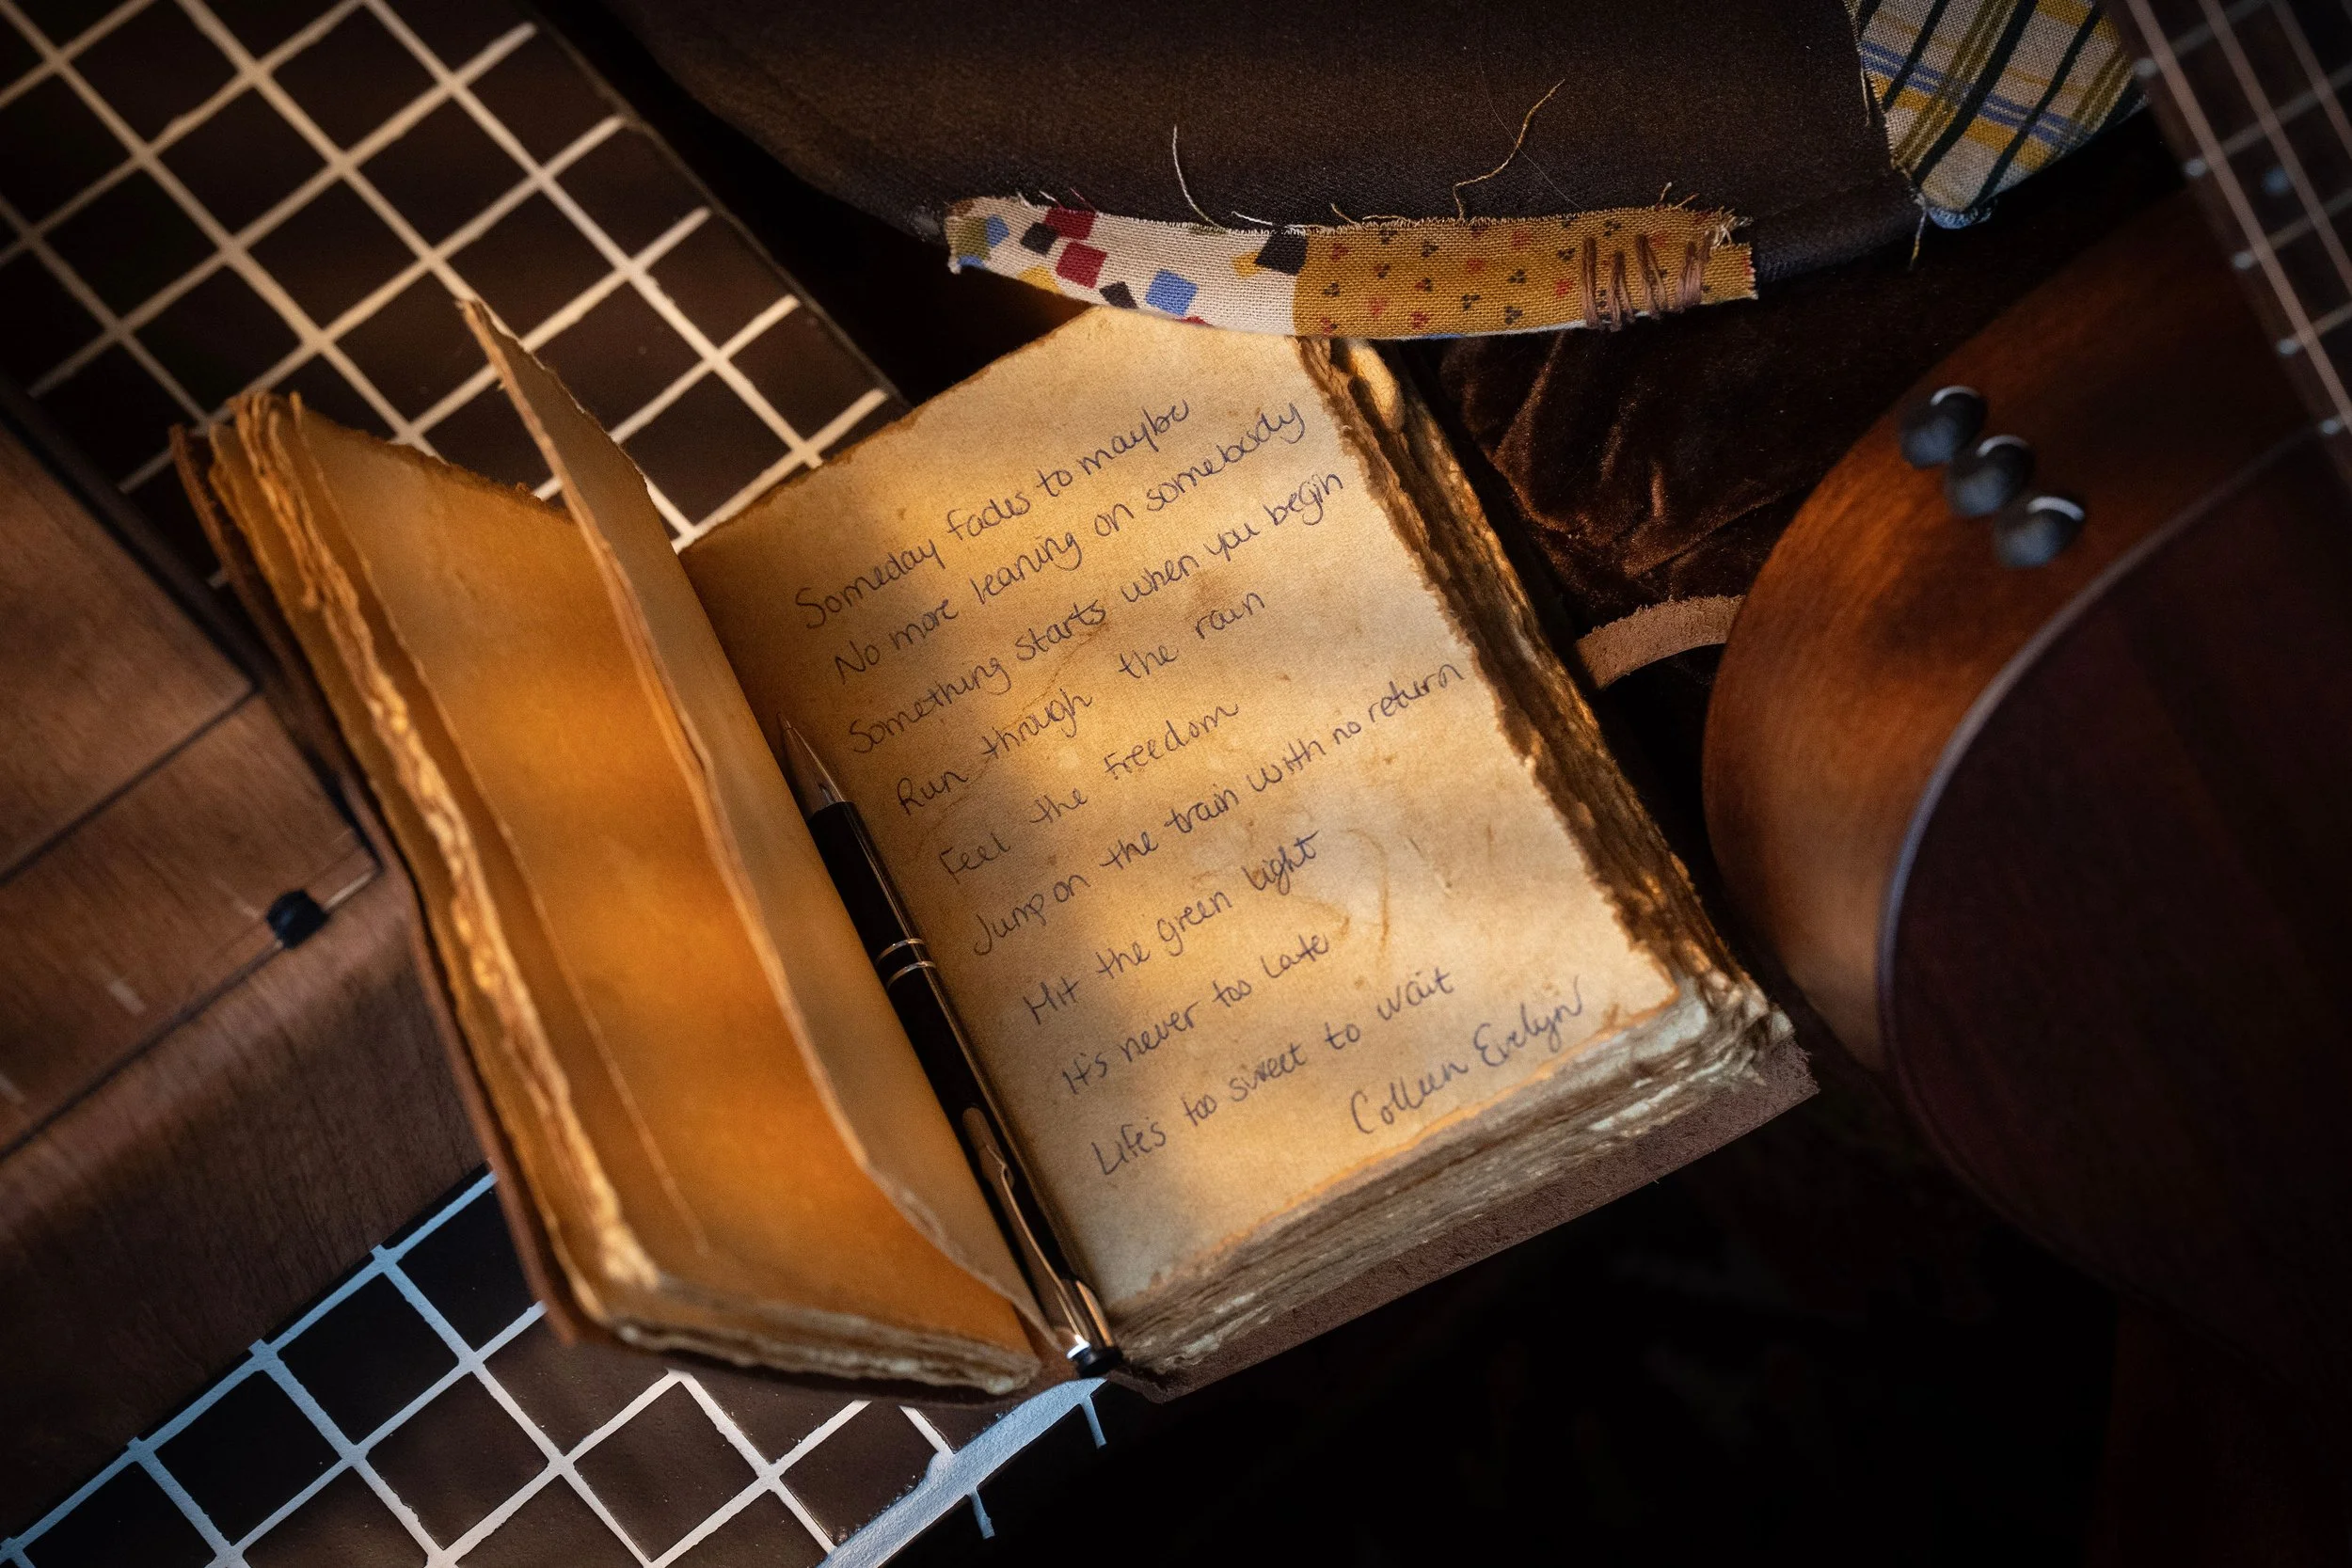 Someday fades to maybe
No more leaning on somebody
Something starts when you begin
Run through the rain
Feel the Freedom
Jump on the train with no return
Hit the green light
It's never too Late
Life's too sweet to wait
Colleen Evelyn